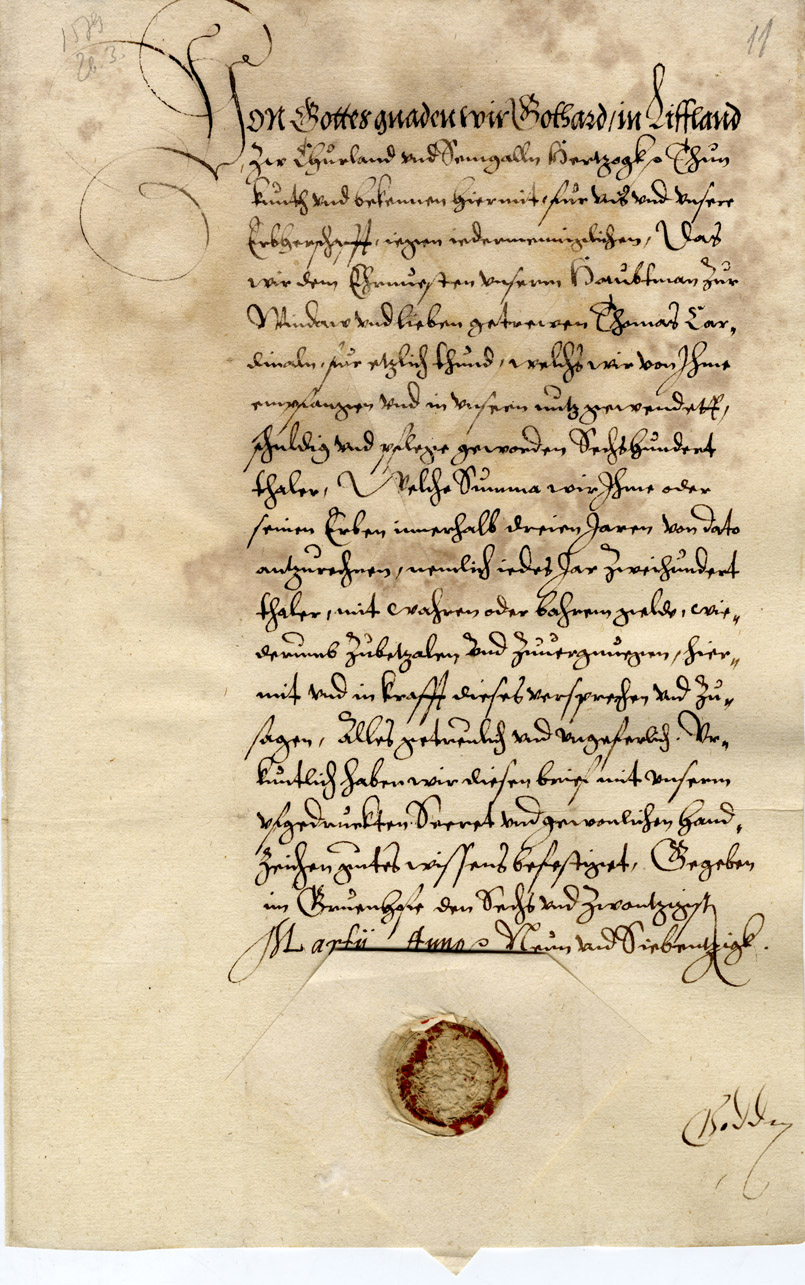 1579
26.3.
11
Von Gottes gnaden wir Gothard, in Liffland
Zw Churland vnd Semgalln Hertzogk, Thun
kunth vnd bekennen hiermit, fur vns vnd vnsere
Erbherschafft, iegen iedermenniglichen, Das
wir dem Ehrnuesten vnserm Haubtman zur
Windaw vnd lieben getrewen Thomas Car„
dinaln, fur etzlich thund, welchs wir von Ihme
empfangen vnd in vnsern nutz gewendett,
schuldig vnd pflege geworden Sechshundert
thaler, Welche Summa wir Ihme oder
seinen Erben innerhalb dreien Jaren von dato
antzurechnen, nemlich iedes Jar Zweihundert
thaler, mit wahren oder bahrem gelde, wie„
derumb Zubetzalen vnd Zuuergnuegen, hier„
mit vnd in krafft dieses versprechen vnd Zu„
sagen, Alles getreulich vnd vngeferlich. Vr„
kuntlich haben wir diesen brief mit vnserm
vfgedruckten Secret vnd gewonlichen hand„
zeichen gutes wissens befestiget, Gegeben
im Gruenhofe den Sechs vnd Zwantzigst
Martii Anno Neun vnd Siebentzigk.